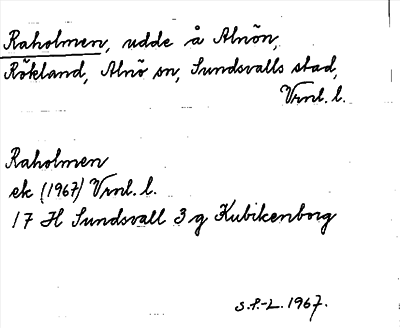 Raholmen, udde å Alnön,
Rökland, Alnö sn, Sundsvalls stad,
Vrml. l.
Raholmen
ek (1967) Vrml. l.
17 H Sundsvall 3 g Kubikenborg
S.P.-L. 1967.